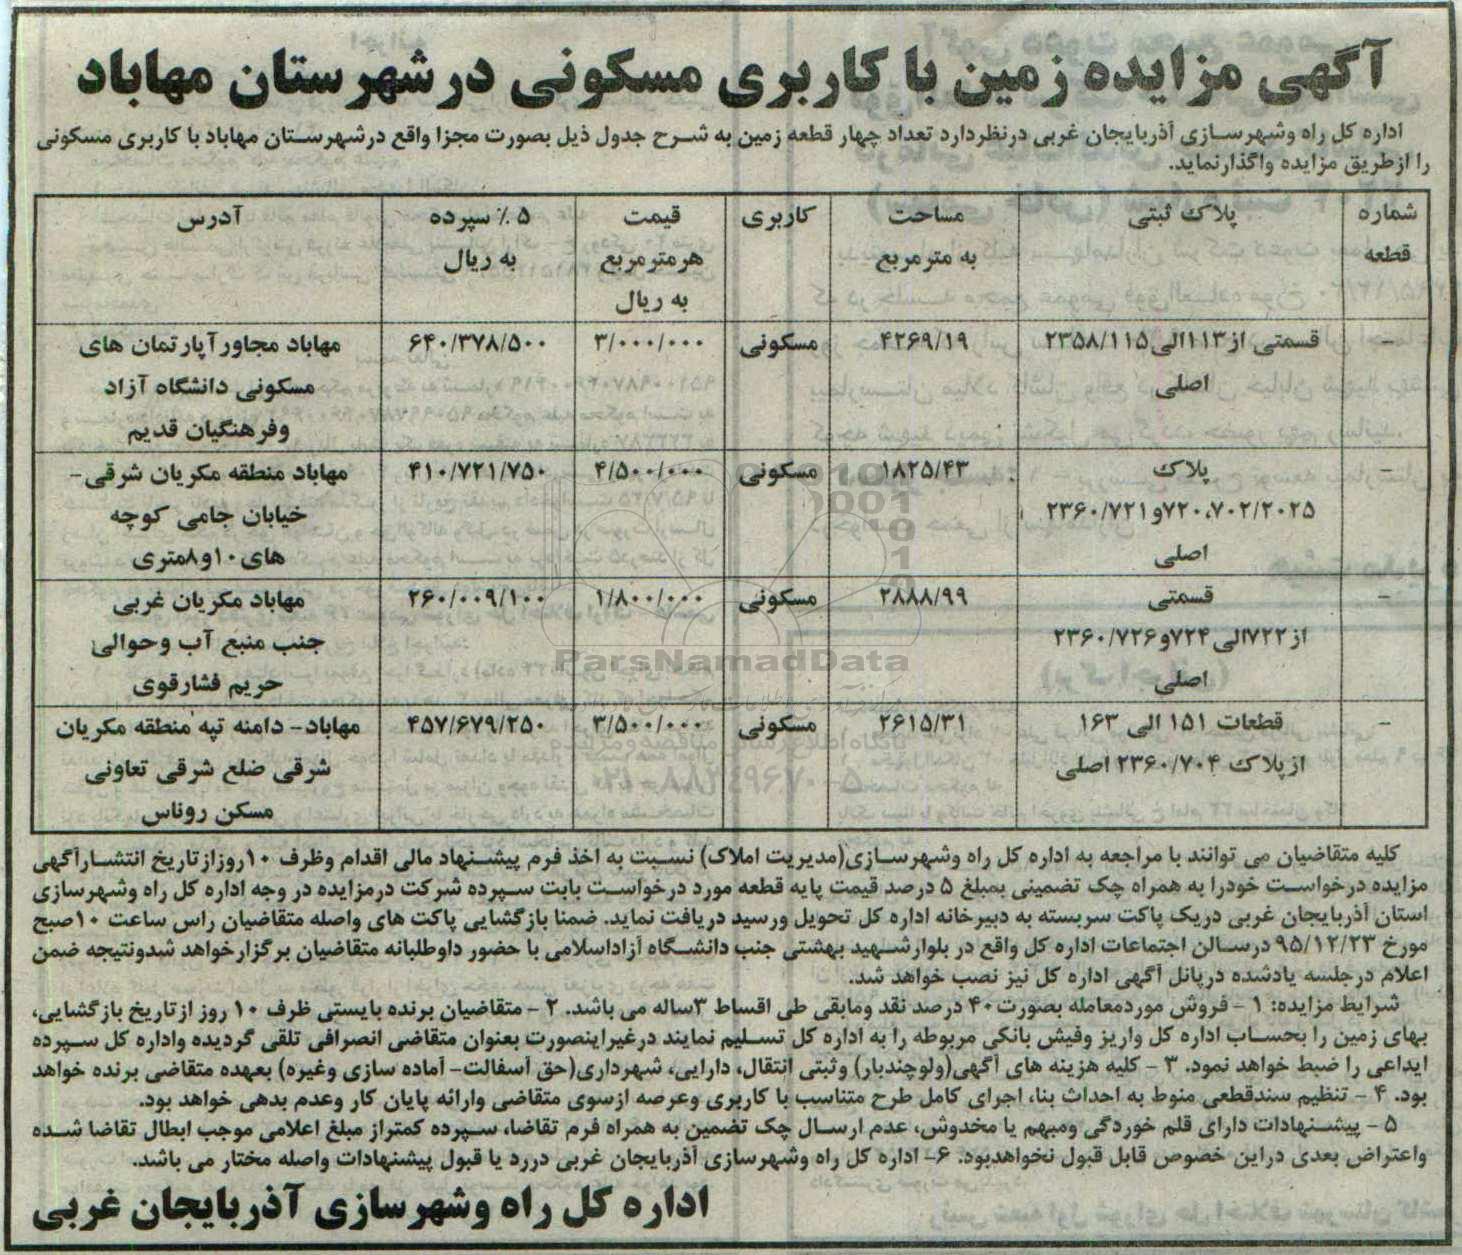 آگهی مزایده زمین با کاربری مسکونی درشهرستان مهاباد
اداره کل راه وشهرسازی آذربایجان غربی درنظردارد تعداد چهار قطعه زمین به شرح جدول ذیل بصورت مجزا واقع درشهرستان مهاباد با کاربری مسکونی
را ازطریق مزایده واگذارنماید.
شماره قطعه | پلاک ثبتی | مساحت به مترمربع | کاربری | قیمت هرمترمربع به ریال | ۵ ٪ سپرده به ریال | آدرس
- | قسمتی از۱۱۳الی۲۳۵۸/۱۱۵ اصلی | ۴۲۶۹/۱۹ | مسکونی | ۳/۰۰۰/۰۰۰ | ۶۴۰/۳۷۸/۵۰۰ | مهاباد مجاورآپارتمان های مسکونی دانشگاه آزاد وفرهنگیان قدیم
- | پلاک ۷۲۰،۷۰۲/۲۰۲۵و۲۳۶۰/۷۲۱ اصلی | ۱۸۲۵/۴۳ | مسکونی | ۴/۵۰۰/۰۰۰ | ۴۱۰/۷۲۱/۷۵۰ | مهاباد منطقه مکریان شرقی- خیابان جامی کوچه های۱۰و۸متری
- | قسمتی از۷۲۲الی۷۲۴و۲۳۶۰/۷۲۶ اصلی | ۲۸۸۸/۹۹ | مسکونی | ۱/۸۰۰/۰۰۰ | ۲۶۰/۰۰۹/۱۰۰ | مهاباد مکریان غربی جنب منبع آب وحوالی حریم فشارقوی
- | قطعات ۱۵۱ الی ۱۶۳ ازپلاک ۲۳۶۰/۷۰۴ اصلی | ۲۶۱۵/۳۱ | مسکونی | ۳/۵۰۰/۰۰۰ | ۴۵۷/۶۷۹/۲۵۰ | مهاباد- دامنه تپه منطقه مکریان شرقی ضلع شرقی تعاونی مسکن روناس
ParsNamadData
کلیه متقاضیان می توانند با مراجعه به اداره کل راه وشهرسازی(مدیریت املاک) نسبت به اخذ فرم پیشنهاد مالی اقدام وظرف ۱۰روزازتاریخ انتشارآگهی
مزایده درخواست خودرا به همراه چک تضمینی بمبلغ ۵ درصد قیمت پایه قطعه مورد درخواست بابت سپرده شرکت درمزایده در وجه اداره کل راه وشهرسازی
استان آذربایجان غربی دریک پاکت سربسته به دبیرخانه اداره کل تحویل ورسید دریافت نماید. ضمنا بازگشایی پاکت های واصله متقاضیان راس ساعت ۱۰صبح
مورخ ۹۵/۱۲/۲۳ درسالن اجتماعات اداره کل واقع در بلوارشهید بهشتی جنب دانشگاه آزاداسلامی با حضور داوطلبانه متقاضیان برگزارخواهد شدونتیجه ضمن
اعلام درجلسه یادشده درپانل آگهی اداره کل نیز نصب خواهد شد.
شرایط مزایده: ۱ - فروش موردمعامله بصورت۴۰ درصد نقد ومابقی طی اقساط ۳ساله می باشد. ۲ - متقاضیان برنده بایستی ظرف ۱۰ روز ازتاریخ بازگشایی،
بهای زمین را بحساب اداره کل واریز وفیش بانکی مربوطه را به اداره کل تسلیم نمایند درغیراینصورت بعنوان متقاضی انصرافی تلقی گردیده واداره کل سپرده
ایداعی را ضبط خواهد نمود. ۳ - کلیه هزینه های آگهی(ولوچندبار) وثبتی انتقال، دارایی، شهرداری(حق آسفالت- آماده سازی وغیره) بعهده متقاضی برنده خواهد
بود. ۴ - تنظیم سندقطعی منوط به احداث بنا، اجرای کامل طرح متناسب با کاربری وعرصه ازسوی متقاضی وارائه پایان کار وعدم بدهی خواهد بود.
۵ - پیشنهادات دارای قلم خوردگی ومبهم یا مخدوش، عدم ارسال چک تضمین به همراه فرم تقاضا، سپرده کمتراز مبلغ اعلامی موجب ابطال تقاضا شده
واعتراض بعدی دراین خصوص قابل قبول نخواهدبود. ۶- اداره کل راه وشهرسازی آذربایجان غربی دررد یا قبول پیشنهادات واصله مختار می باشد.
اداره کل راه وشهرسازی آذربایجان غربی